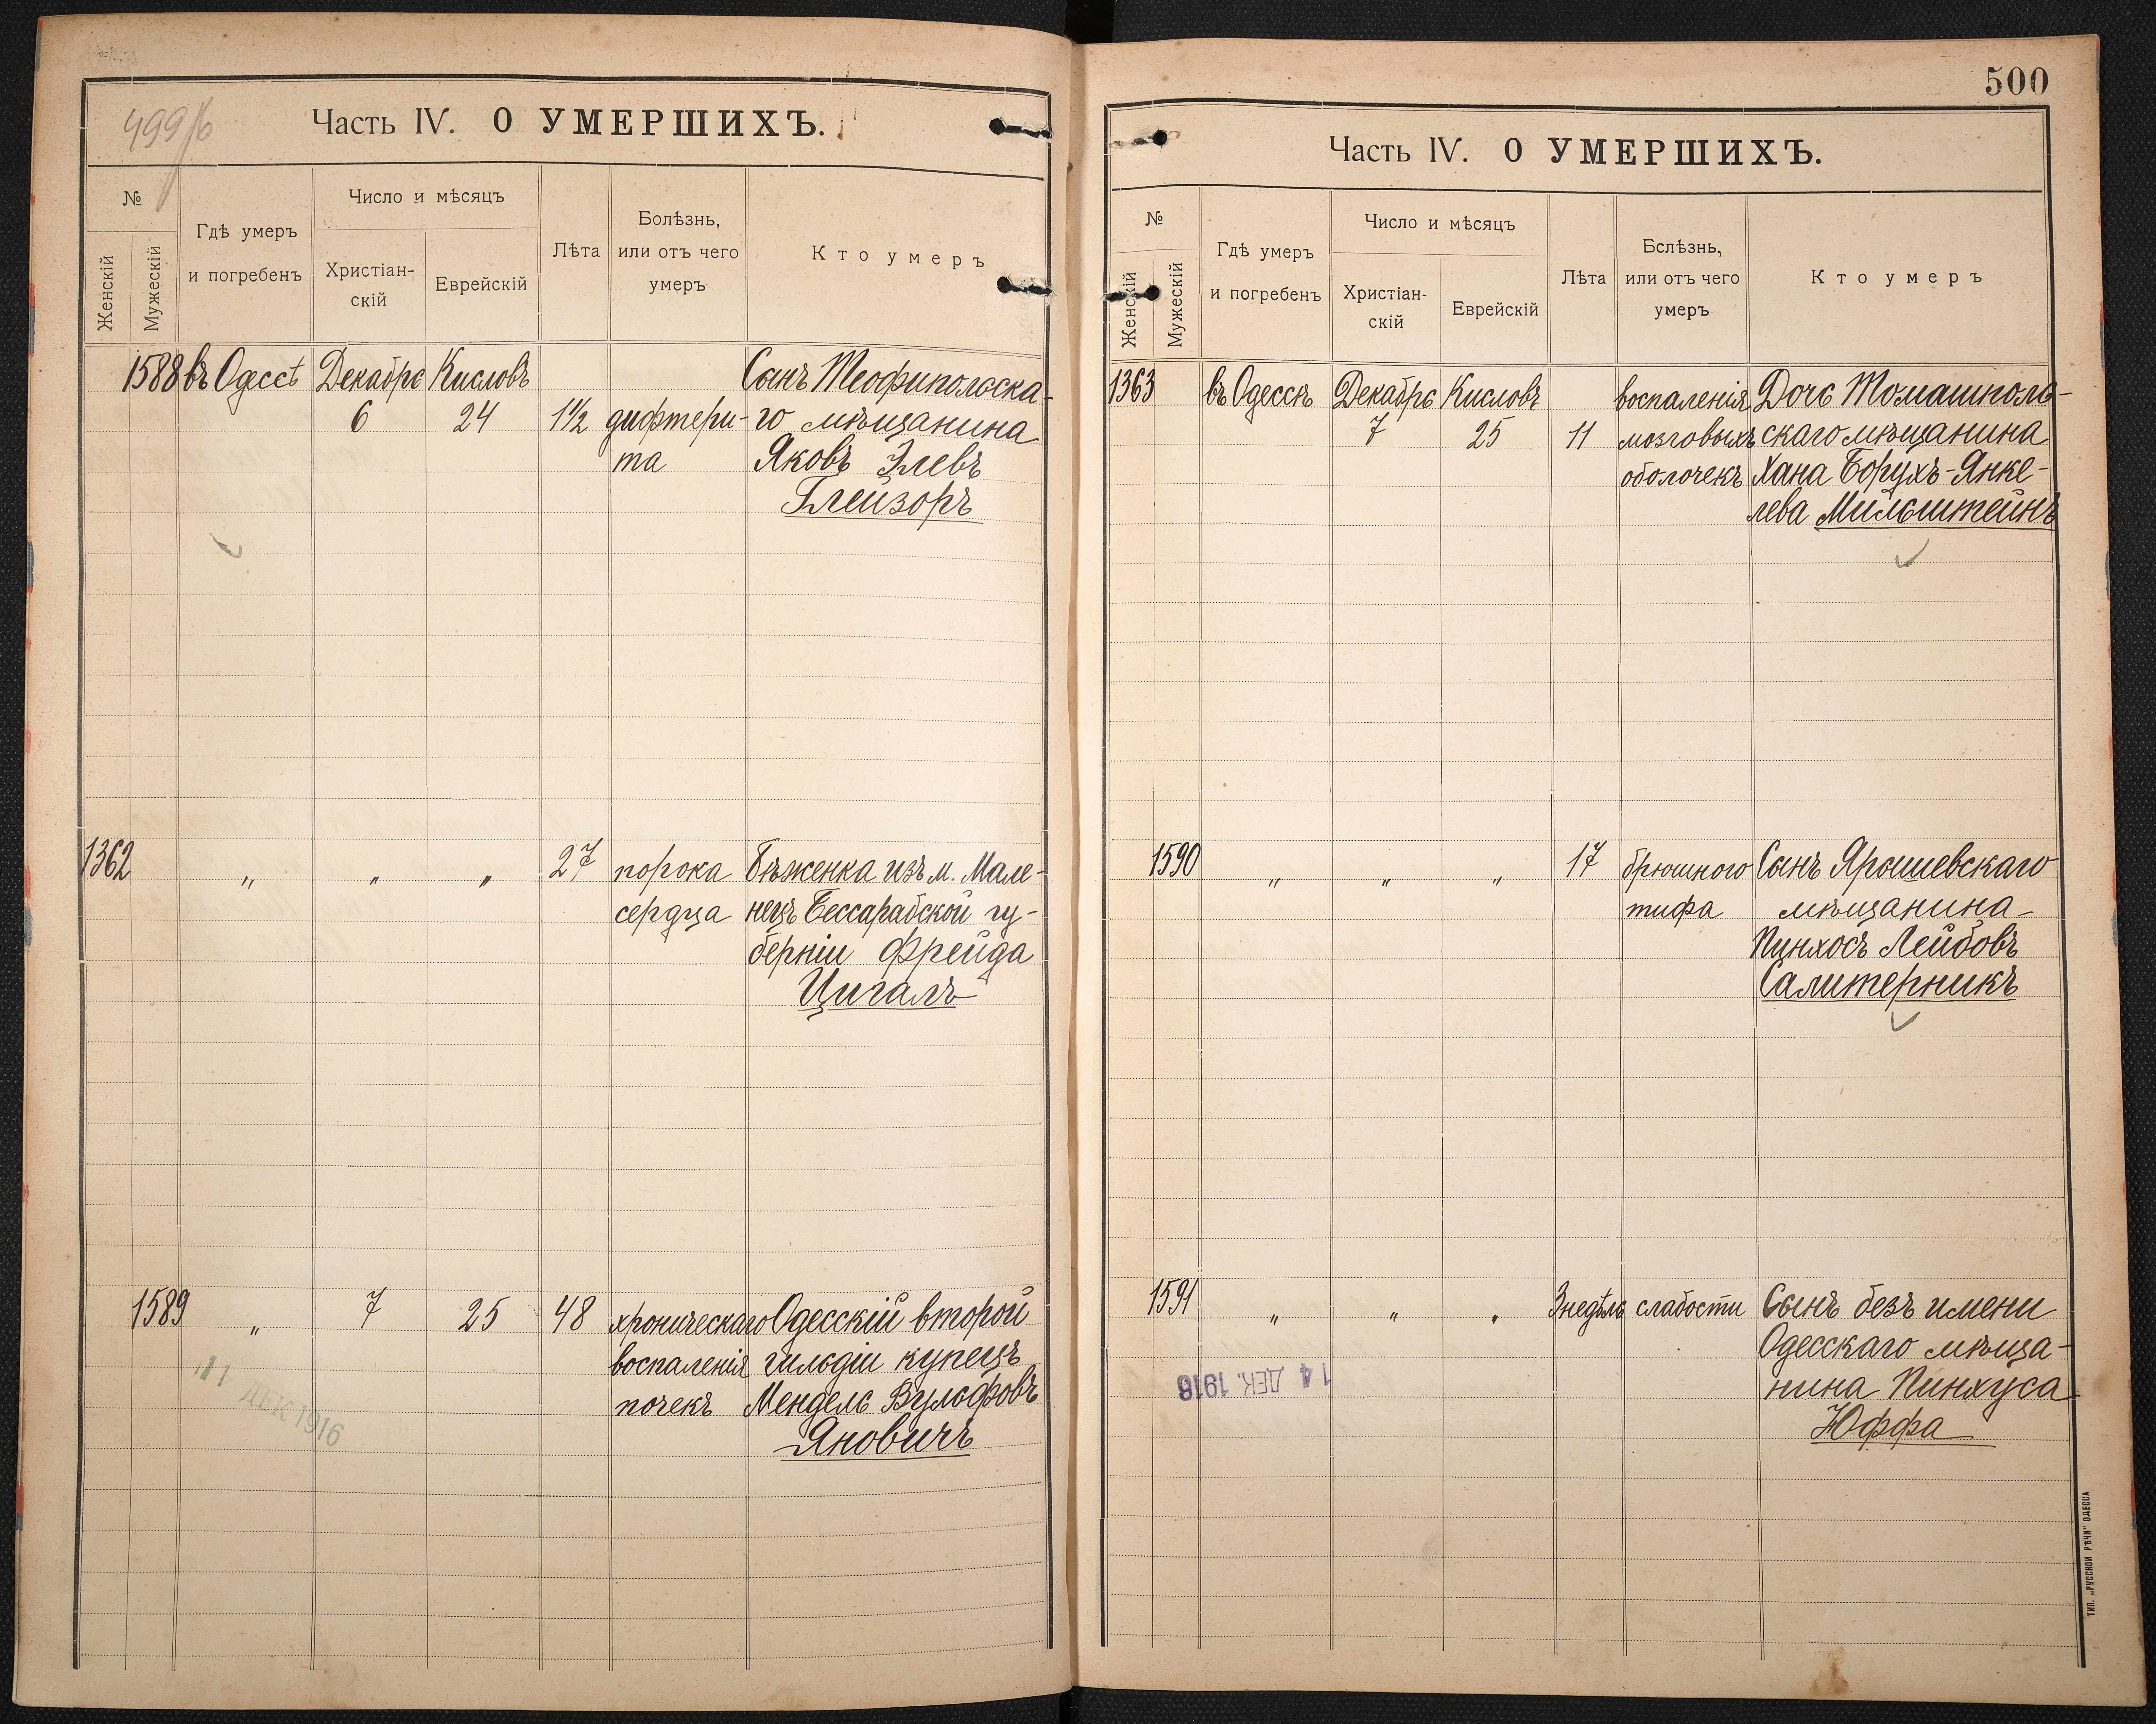 499/б
Часть IV. О УМЕРШИХЪ.
№
Женскій
Мужескій
Гдѣ умеръ
и погребенъ
Число и мѣсяцъ
Христіан-
скій
Еврейскій
Лѣта
Болѣзнь,
или отъ чего
умеръ
Кто умеръ
1588 въ Одессѣ Декабрь Кисловъ Сынъ Теофипольска-
6 24 1½ дифтери- го мѣщанина
та Яковъ Элевъ
Глейзоръ
1362 " " " 27 порока Бѣженка изъ м. Мале-
сердца нецъ Бессарабской гу-
берніи Фрейда
Цигалъ
1589 " 7 25 48 хроническаго Одесскій второй
воспаленія гильдіи купецъ
почекъ Мендель Вульфовъ
Яновичъ
11 ДЕК 1916
500
Часть IV. О УМЕРШИХЪ.
№
Женскій
Мужескій
Гдѣ умеръ
и погребенъ
Число и мѣсяцъ
Христіан-
скій
Еврейскій
Лѣта
Бслѣзнь,
или отъ чего
умеръ
Кто умеръ
1363 въ Одессѣ Декабрь Кисловъ воспаленія Дочь Томашполь-
7 25 11 мозговыхъ скаго мѣщанина
оболочекъ Хана Борухъ-Янке-
лева Мильштейнъ
1590 " " " 17 брюшного Сынъ Ярышевскаго
тифа мѣщанина
Пинхосъ Лейбовъ
Салитерникъ
1591 " " " 3 недѣль слабости Сынъ безъ имени
Одесскаго мѣща-
нина Пинхуса
Юффа
14 ДЕК. 1916
ТИП. „РУССКОЙ РѢЧИ“ ОДЕССА